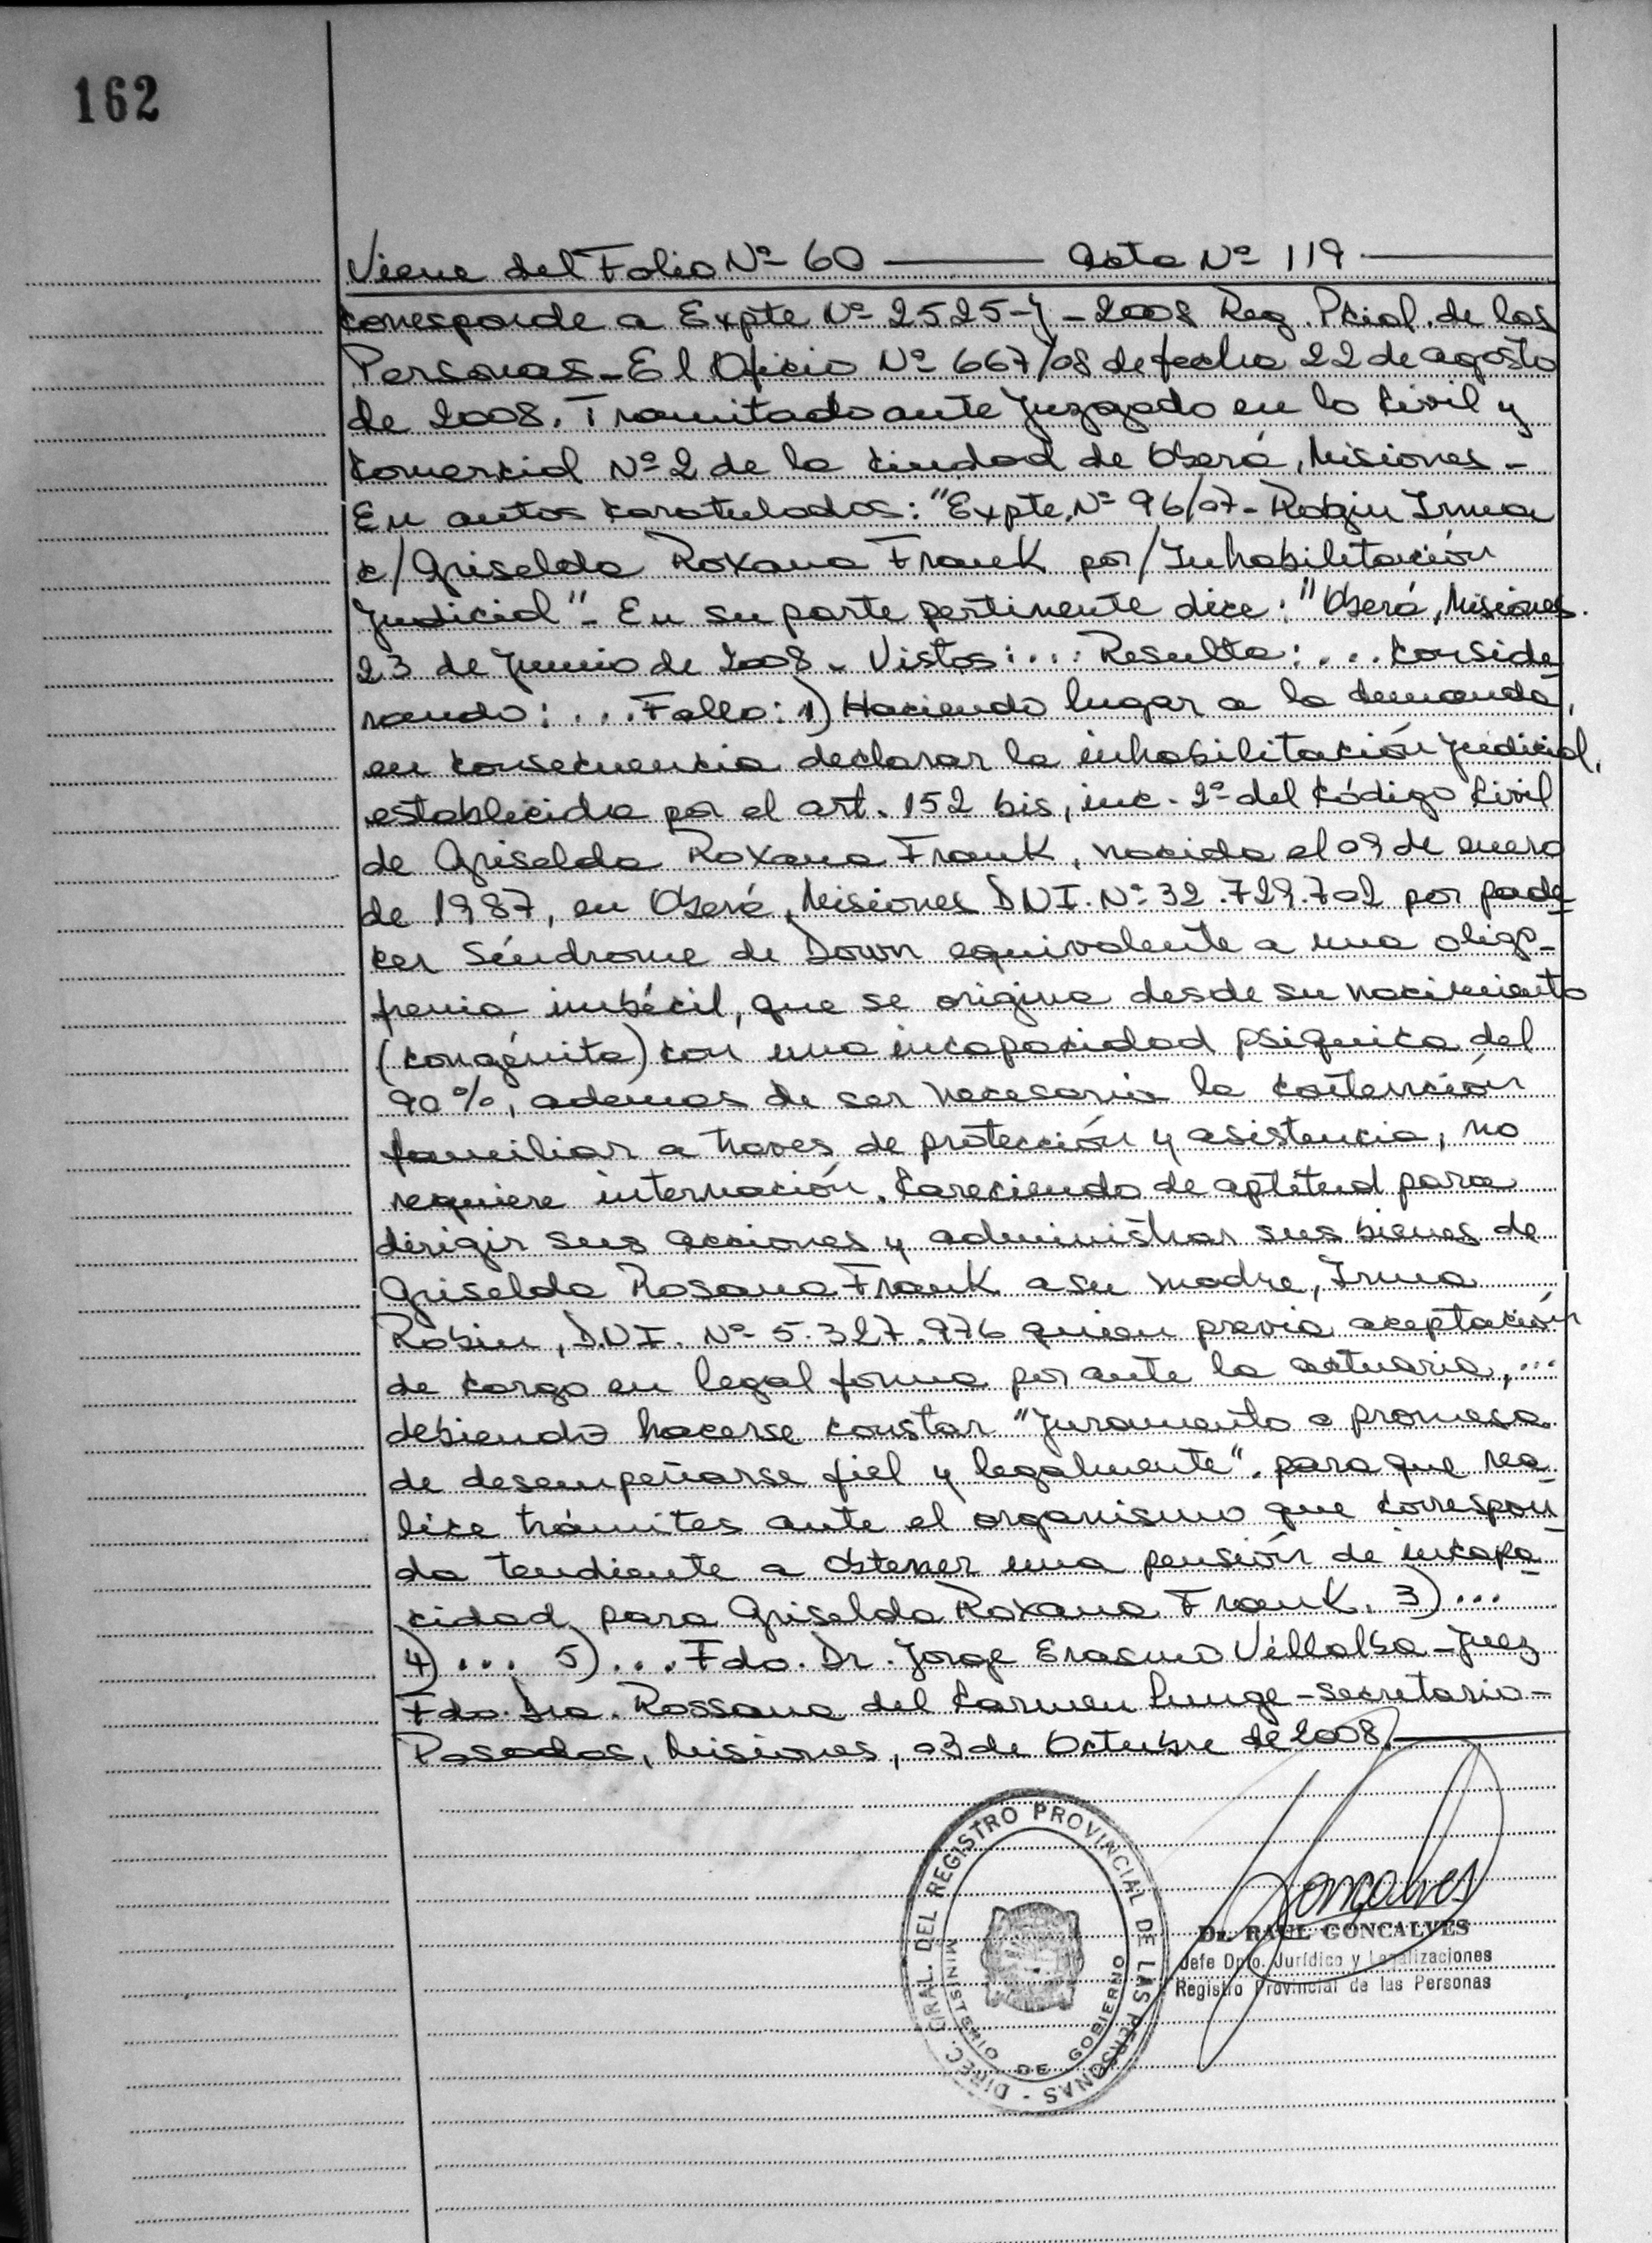 162
Viene del Folio Nº 60 —— Acta Nº 119 ——
corresponde a Expte Nº 2525-J-2008 Reg. Pcial. de las
Personas-El Oficio Nº 667/08 de fecha 22 de agosto
de 2008. Tramitado ante Juzgado en lo Civil y
Comercial Nº 2 de la ciudad de Oberá, Misiones-
En autos caratulados: "Expte. Nº 96/07- Robin Irma
c/Griselda Roxana Frank por/Inhabilitación
Judicial"- En su parte pertinente dice: "Oberá, Misiones.
23 de Junio de 2008- Vistos:... Resulta:... Conside
rando:... Fallo: 1) Haciendo lugar a la demanda,
en consecuencia declarar la inhabilitación judicial,
establecida por el art. 152 bis, inc. 2º del Código Civil
de Griselda Roxana Frank, nacida el 09 de enero
de 1987, en Oberá, Misiones DNI. Nº 32.729.702 por pade
cer Síndrome de Down equivalente a una oligo-
frenia imbécil, que se origina desde su nacimiento
(congénita) con una incapacidad psíquica del
90%, ademas de ser necesaria la contención
familiar a traves de protección y asistencia, no
requiere internación. Careciendo de aptitud para
dirigir sus acciones y administrar sus bienes de
Griselda Rosana Frank a su madre, Irma
Robin, D.N.I. Nº 5.327.976 quien previa aceptación
de cargo en legal forma por ante la actuaria,...
debiendo hacerse constar "juramento o promesa
de desempeñarse fiel y legalmente". para que rea
lice trámites ante el organismo que correspon
da tendiente a obtener una pensión de incapa
cidad para Griselda Roxana Frank. 3)...
4)... 5)... Fdo. Dr. Jorge Erasmo Villalba-Juez
Fdo. Dra. Rossana del Carmen -Secretaria-
Posadas, Misiones, 03 de Octubre de 2008.——
DIREC. GRAL. DEL REGISTRO PROVINCIAL DE LAS PERSONAS -
MINISTERIO DE GOBIERNO
Goncalves
Dr. RAUL GONCALVES
Jefe Dpto. Jurídico y Legalizaciones
Registro Provincial de las Personas